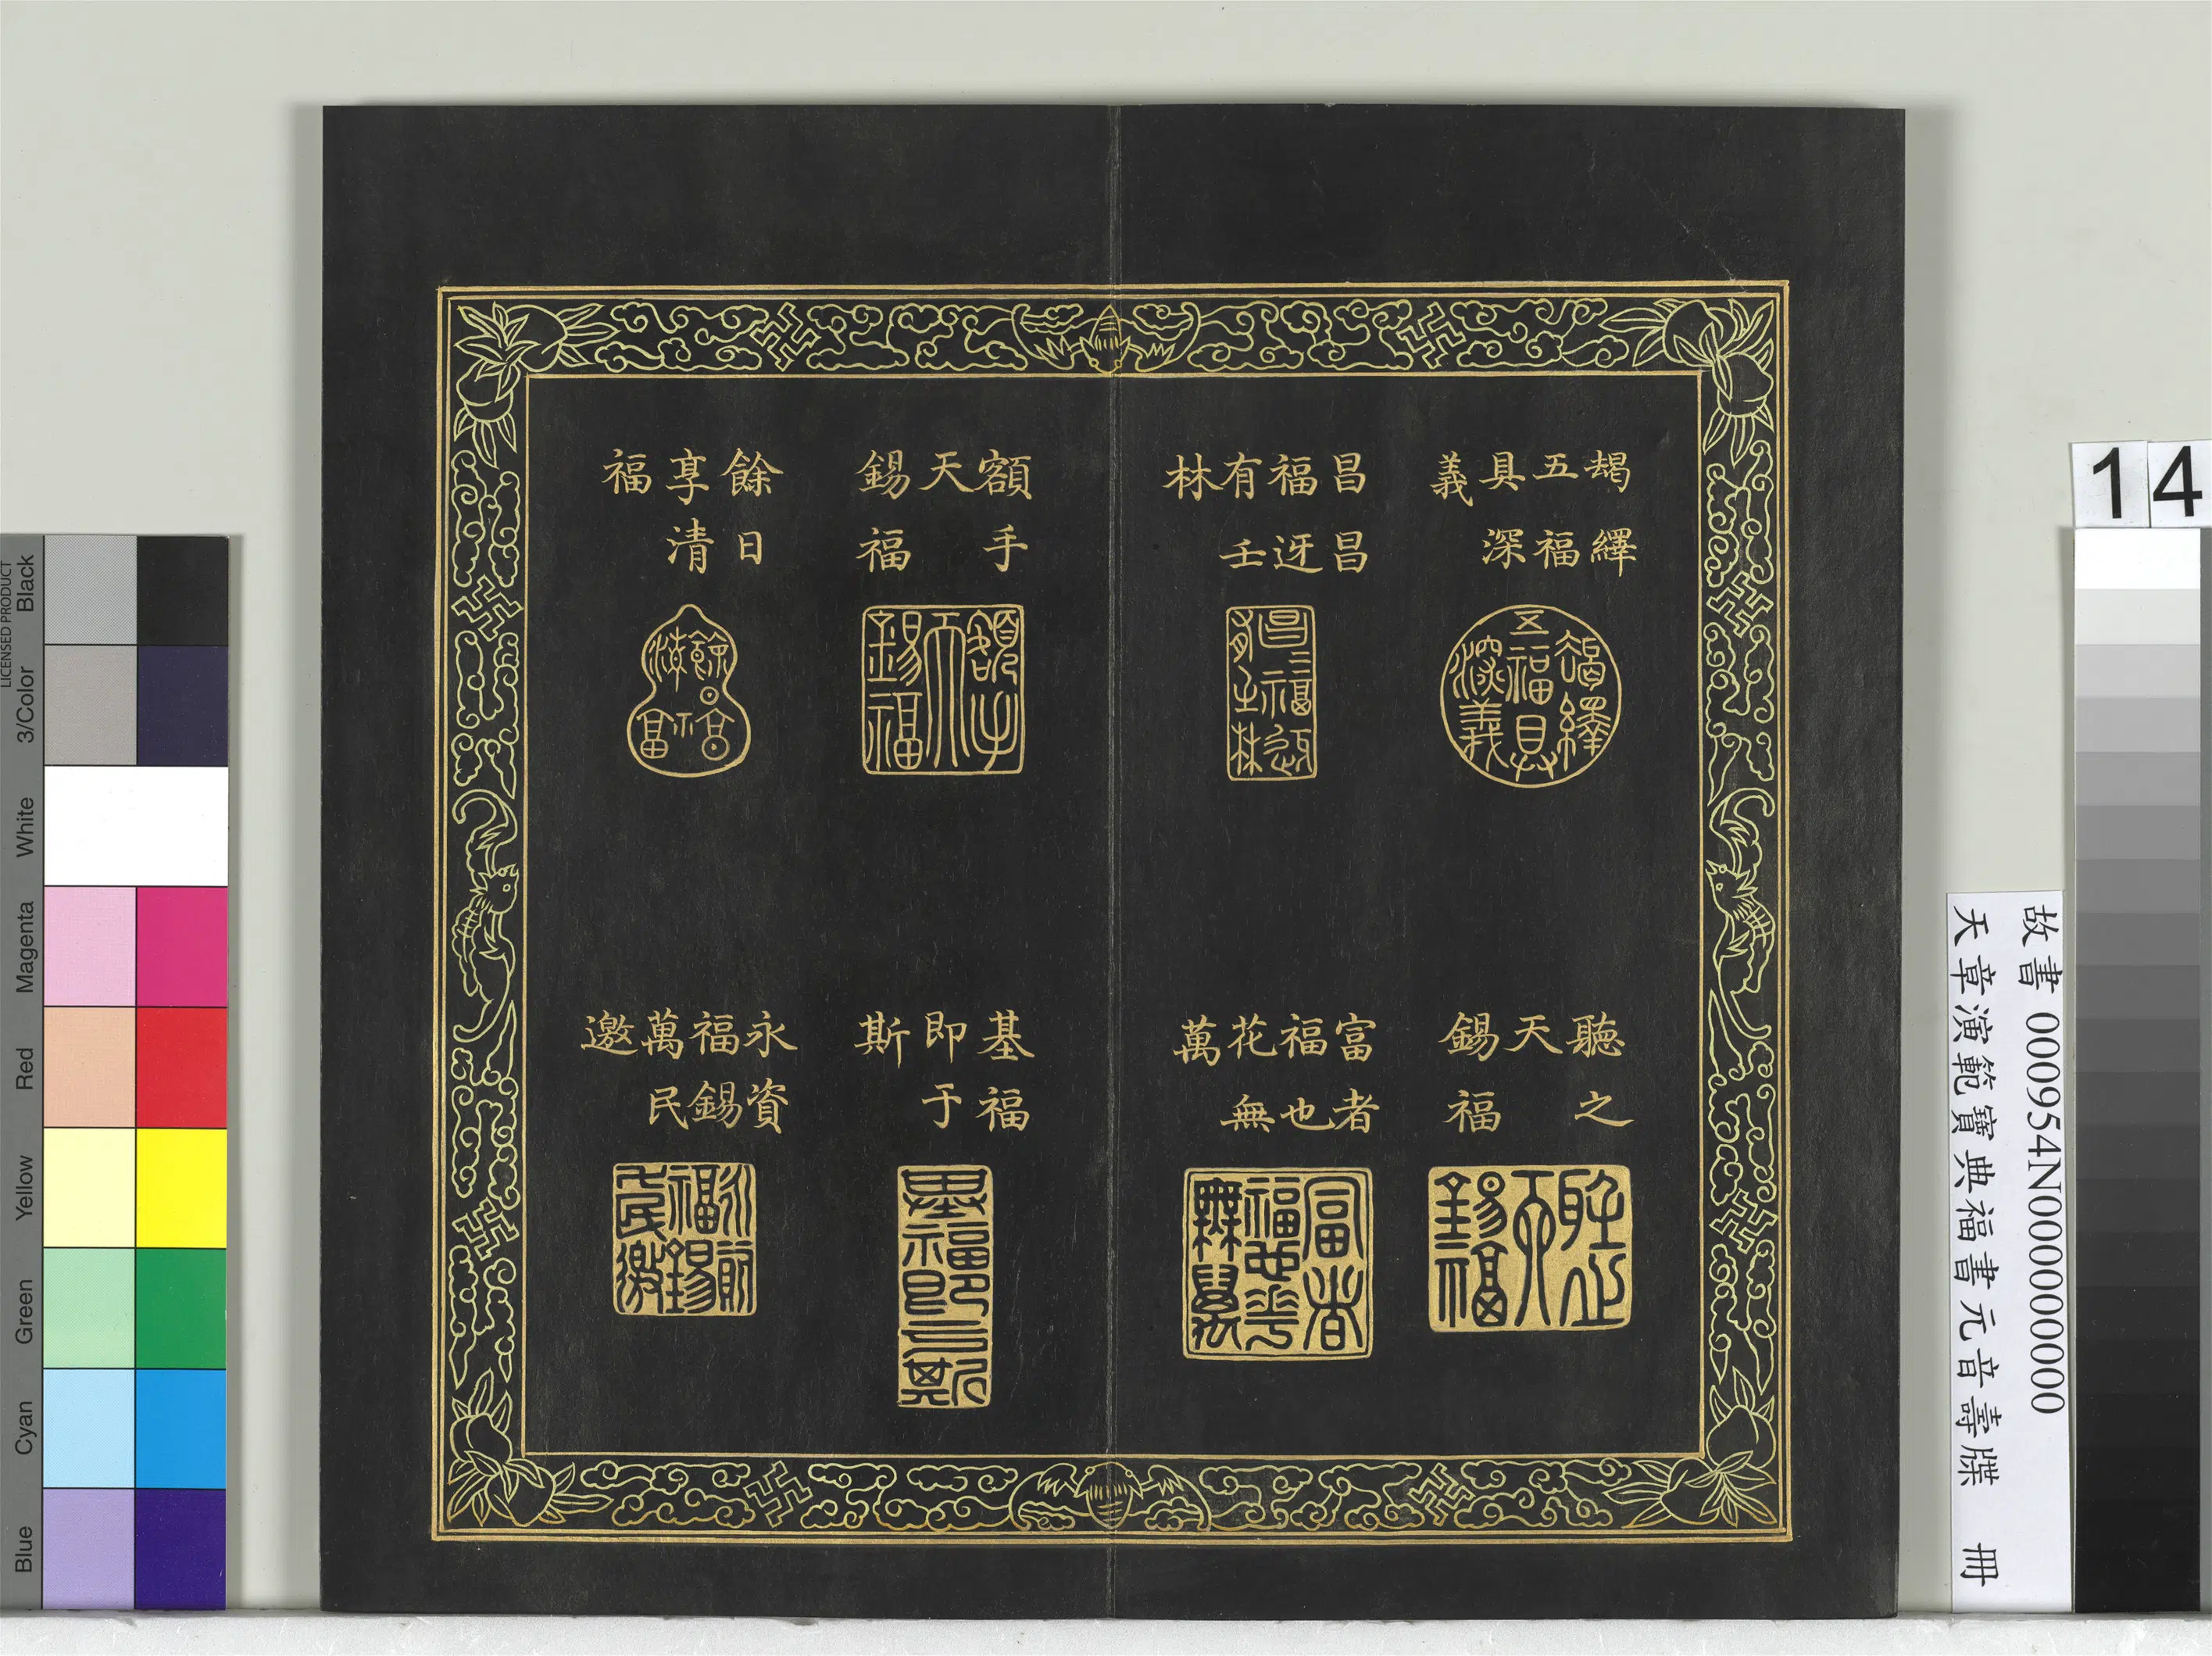 朅繹
五福
具深
義
昌昌
福迓
有壬
林
額手
天
錫福
餘日
享清
福
聽之
天
錫福
富者
福也
花無
萬
基福
即于
斯
永資
福錫
萬民
邀
14
故書 000954N000000000
天章演範寶典福書元音壽牒 冊
LICENSED PRODUCT
Black
3/Color
White
Magenta
Red
Yellow
Green
Cyan
Blue